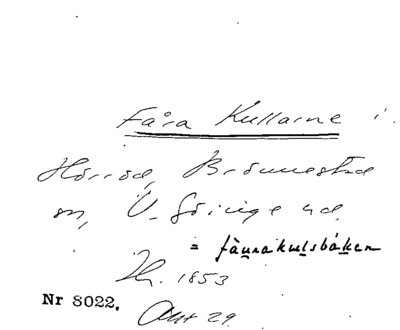 Fåra Kullarne i
Hörröd, Brönnestad
sn, V. Göinge hd.
= fåu̱rakul̲sbáken
Ih. 1853
Nr 8022. Akt 29.